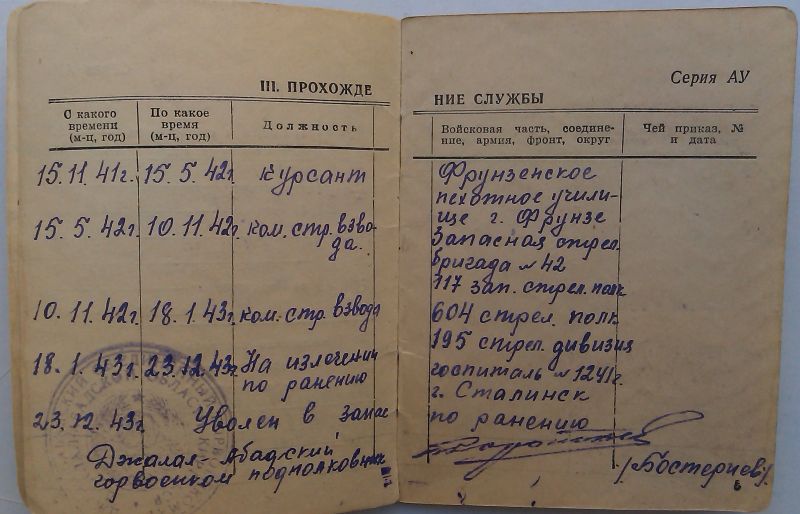 III. ПРОХОЖДЕ
С какого времени (м-ц, год)
По какое время (м-ц, год)
Должность
15.11.41г. 15.5.42г. курсант
15.5.42г. 10.11.42г. ком. стр. взво-
да.
10.11.42г. 18.1.43г. ком. стр. взвода
18.1.43г. 23.12.43г. На излечении
по ранению
23.12.43г. Уволен в запас
Джалал-Абадский
горвоенком подполковник
Серия АУ
НИЕ СЛУЖБЫ
Войсковая часть, соедине-
ние, армия, фронт, округ
Чей приказ, №
и дата
Фрунзенское
пехотное учили-
ще г. Фрунзе
Запасная стрел.
бригада №42
117 зап. стрел. полк
604 стрел. полк
195 стрел. дивизия
госпиталь №1241г.
г. Сталинск
по ранению
/Бостериев/